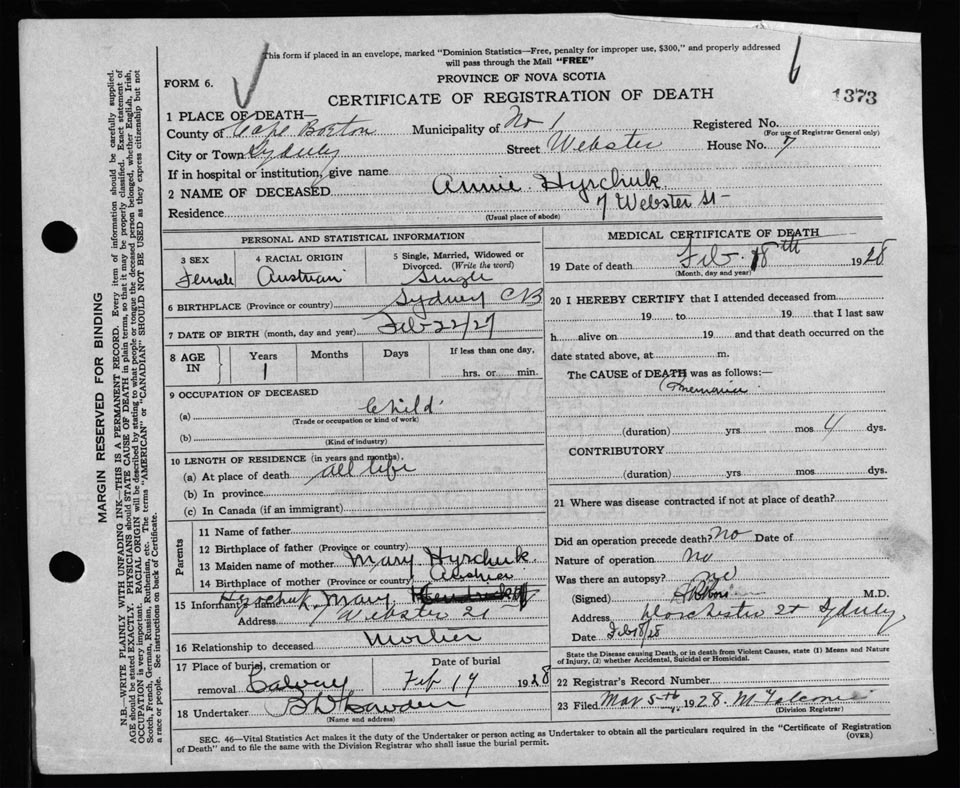 This form if placed in an envelope, marked "Dominion Statistics—Free, penalty for improper use, $300," and properly addressed
will pass through the Mail "FREE"
FORM 6.
PROVINCE OF NOVA SCOTIA
CERTIFICATE OF REGISTRATION OF DEATH
1373
1 PLACE OF DEATH—
County of Cape Breton Municipality of No 1 Registered No.
(For use of Registrar General only)
City or Town Sydney Street Webster House No. 7
If in hospital or institution, give name
2 NAME OF DECEASED Annie Hyrchuk
Residence 7 Webster St
(Usual place of abode)
PERSONAL AND STATISTICAL INFORMATION
3 SEX Female
4 RACIAL ORIGIN Austrian
5 Single, Married, Widowed or Divorced. (Write the word) Single
6 BIRTHPLACE (Province or country) Sydney CB
7 DATE OF BIRTH (month, day and year) Feb 22/27
8 AGE IN Years Months Days If less than one day,
1 hrs. or min.
9 OCCUPATION OF DECEASED
(a) Child
(Trade or occupation or kind of work)
(b)
(Kind of industry)
10 LENGTH OF RESIDENCE (in years and months).
(a) At place of death all life
(b) In province
(c) In Canada (if an immigrant)
Parents
11 Name of father
12 Birthplace of father (Province or country)
13 Maiden name of mother Mary Hyrchuk
14 Birthplace of mother (Province or country) Austria
15 Informant's name Hyrchuk, Mary
Address Webster St
16 Relationship to deceased Mother
17 Place of burial, cremation or removal Calvery
Date of burial Feb 19 1928
18 Undertaker
(Name and address)
MEDICAL CERTIFICATE OF DEATH
19 Date of death Feb. 18th 1928
(Month, day and year)
20 I HEREBY CERTIFY that I attended deceased from
19 to 19 that I last saw
h alive on 19 and that death occurred on the
date stated above, at m.
The CAUSE of DEATH was as follows:—
Pneumonia
(duration) yrs. mos 4 dys.
CONTRIBUTORY
(duration) yrs. mos dys.
21 Where was disease contracted if not at place of death?
Did an operation precede death? No Date of
Nature of operation no
Was there an autopsy? no
(Signed) M.D.
Address Dorchester St Sydney
Date Feb 18/28
State the Disease causing Death, or in death from Violent Causes, state (1) Means and Nature
of Injury, (2) whether Accidental, Suicidal or Homicidal.
22 Registrar's Record Number
23 Filed Mar 5th 1928.
(Division Registrar)
SEC. 46—Vital Statistics Act makes it the duty of the Undertaker or person acting as Undertaker to obtain all the particulars required in the "Certificate of Registration
of Death" and to file the same with the Division Registrar who shall issue the burial permit.
(OVER)
MARGIN RESERVED FOR BINDING
N.B.—WRITE PLAINLY WITH UNFADING INK—THIS IS A PERMANENT RECORD. Every item of information should be carefully supplied.
AGE should be stated EXACTLY. PHYSICIANS should STATE CAUSE OF DEATH in plain terms, so that it may be properly classified. Exact statement of
OCCUPATION is very important. RACIAL ORIGIN will be described by stating to what people or tongue the deceased person belonged, whether English, Irish,
Scotch, French, German, Russian, Ruthenian, etc. The terms "AMERICAN" or "CANADIAN" SHOULD NOT BE USED as they express citizenship but not
a race or people. See instructions on back of Certificate.